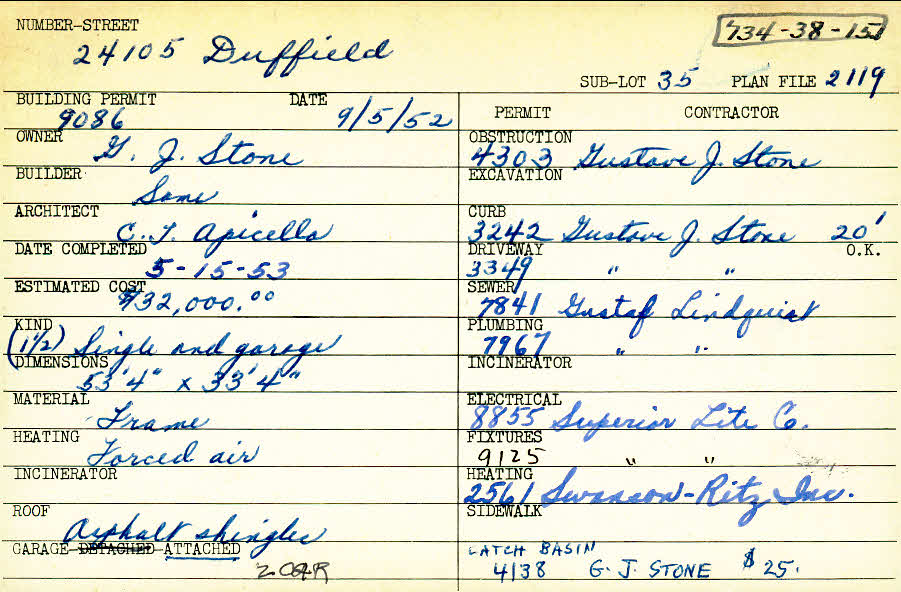 NUMBER-STREET
734-38-151
24105 Duffield
SUB-LOT 35 PLAN FILE 2119
BUILDING PERMIT DATE
9086 9/5/52
OWNER
G. J. Stone
BUILDER
Same
ARCHITECT
C. T. Apicella
DATE COMPLETED
5-15-53
ESTIMATED COST
$32,000.00
KIND
(1 1/2) Single and garage
DIMENSIONS
53'4" x 33'4"
MATERIAL
Frame
HEATING
Forced air
INCINERATOR
ROOF
Asphalt shingles
GARAGE-DETACHED-ATTACHED
2 CAR
PERMIT CONTRACTOR
OBSTRUCTION
4303 Gustave J. Stone
EXCAVATION
CURB
3242 Gustave J. Stone 20'
DRIVEWAY O.K.
3349 " "
SEWER
7841 Gustaf Lindquist
PLUMBING
7967 " "
INCINERATOR
ELECTRICAL
8855 Superior Lite Co.
FIXTURES
9125 " "
HEATING
2561 Swanson-Ritz Inc.
SIDEWALK
CATCH BASIN
4138 G. J. STONE $25.